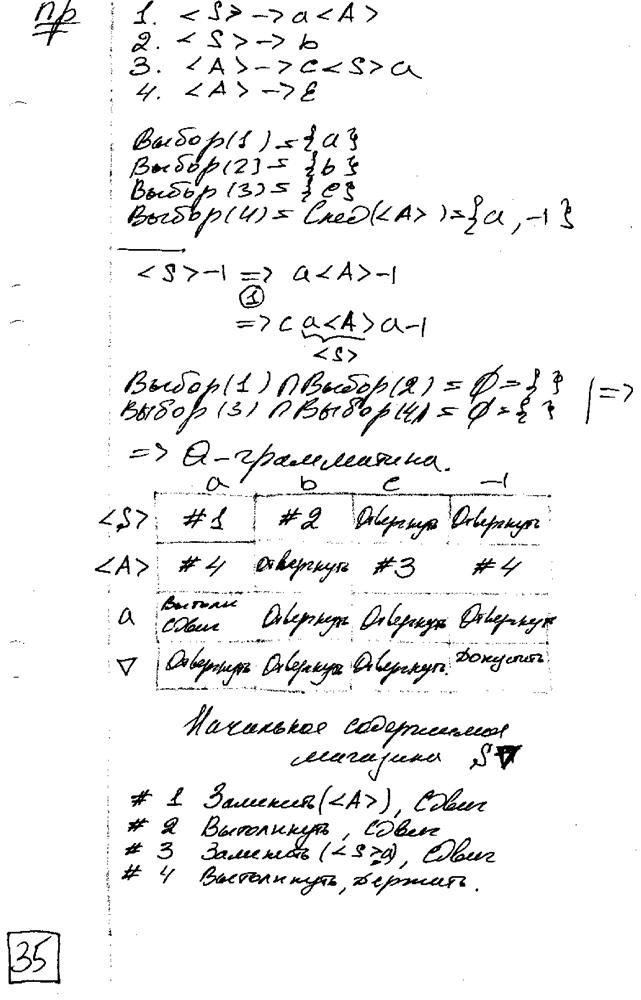 пр
1. <S> -> a<A>
2. <S> -> b
3. <A> -> c<S>a
4. <A> -> ε
Выбор(1) = {a}
Выбор(2) = {b}
Выбор(3) = {c}
Выбор(4) = След(<A>) = {a, ⊣}
<S>⊣ => a<A>⊣
①
=> c a<A> a⊣
<S>
Выбор(1) ∩ Выбор(2) = ∅ = { }
Выбор(3) ∩ Выбор(4) = ∅ = { } | =>
=> Q-грамматика.
a b c ⊣
<S> #1 #2 Отвергнуть Отвергнуть
<A> #4 Отвергнуть #3 #4
a Вытолк Сдвиг Отвергнуть Отвергнуть Отвергнуть
▽ Отвергнуть Отвергнуть Отвергнуть. Допустить
Начальное содержимое
магазина S▽
# 1 Заменить(<A>), Сдвиг
# 2 Вытолкнуть, Сдвиг
# 3 Заменить(<S>a), Сдвиг
# 4 Вытолкнуть, Держать.
35